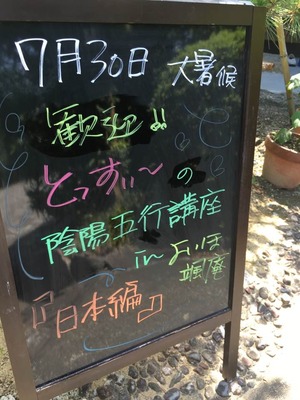 7月30日 大暑候
歓迎!!
とっすぃ〜の
陰陽五行講座
in よいほ
颯庵
『日本編』